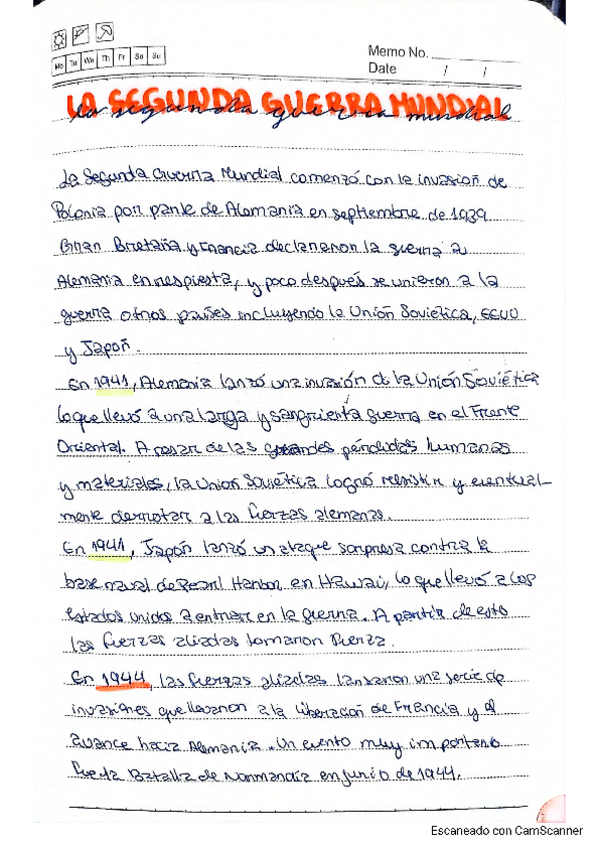 Mo Tu We Th Fr Sa Su
Memo No.
Date / /
LA SEGUNDA GUERRA MUNDIAL
La segunda guerra mundial
La Segunda Guerra Mundial comenzó con la invasión de
Polonia por parte de Alemania en septiembre de 1939
Gran Bretaña y Francia declararon la guerra a
Alemania en respuesta, y poco después se unieron a la
guerra otros países incluyendo la Unión Soviética, EEUU
y Japón.
En 1941, Alemania lanzó una invasión de la Unión Soviética
lo que llevó a una larga y sangrienta guerra en el Frente
Oriental. A pesar de las grandes pérdidas humanas
y materiales, la Unión Soviética logró resistir y eventual-
mente derrotar a las fuerzas alemanas.
En 1941, Japón lanzó un ataque sorpresa contra la
base naval de Pearl Harbor en Hawái, lo que llevó a los
Estados unidos a entrar en la guerra. A partir de esto
las fuerzas aliadas tomaron fuerza.
En 1944, las fuerzas aliadas lanzaron una serie de
invasiones que llevaron a la liberación de Francia y al
avance hacia Alemania. Un evento muy importante
fue la Batalla de Normandía en junio de 1944.
Escaneado con CamScanner